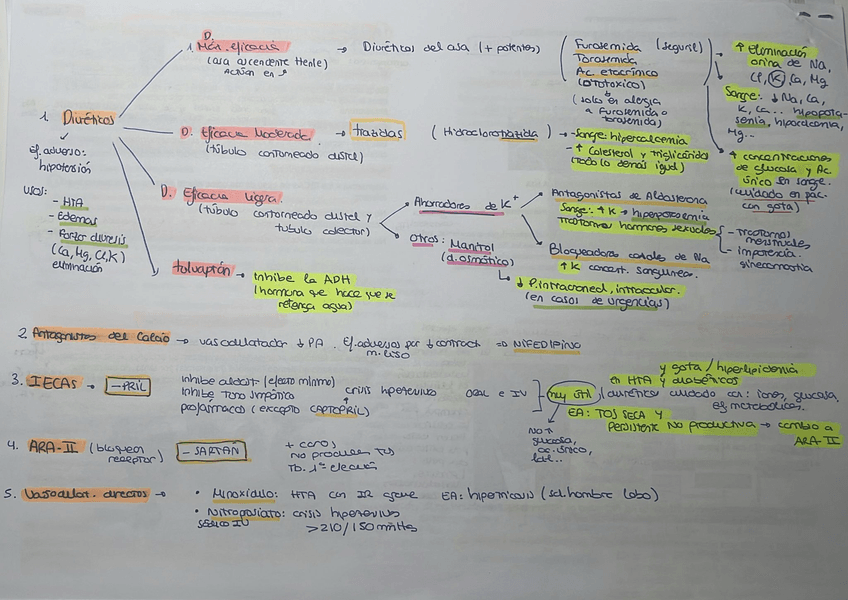 1. Diuréticos
Ef. adverso:
hipotensión
USOS:
- HTA
- Edemas
- Forzar diuresis
(Ca, Mg, Cl, K)
eliminación
D.
1. Máx. eficacia → Diuréticos del asa (+ potentes)
(asa ascendente Henle)
actúan en
Furosemida (seguril)
Torasemida
Ac. etacrínico
(ototóxico)
(solo en alergia
a furosemida o
torasemida)
→ ↑ Eliminación
orina de Na,
Cl, K, Ca, Mg
Sangre: ↓ Na, Ca,
K, Ca... hipopota-
semia, hipocalcemia,
Mg...
↑ concentraciones
de glucosa y Ac.
Úrico en sangre.
(cuidado en pac.
con gota)
D. Eficacia Moderada → tiazidas (Hidroclorotiazida)
(túbulo contorneado distal)
- Sangre: hipercalcemia
- ↑ Colesterol y triglicéridos
(todo lo demás igual)
D. Eficacia ligera
(túbulo contorneado distal y
túbulo colector)
Ahorradores de K+
Antagonistas de Aldosterona
Sangre: ↑ K → hiperpotasemia
Trastornos hormonas sexuales
- Trastornos
menstruales
- impotencia.
ginecomastia
Bloqueadores canales de Na
↑ K concent. sanguínea.
Otros: Manitol
(d. osmótico)
↓ P. intracraneal, intraocular.
(en casos de urgencias)
tolvaptán → Inhibe la ADH
(hormona que hace que se
retenga agua)
2. Antagonistas del Calcio → vasodilatador ↓ PA. Ef. adversos por ↓ contract → NIFEDIPINO
m. liso
3. IECAS → -PRIL
Inhibe aldost. (efecto mínimo)
Inhibe Tono simpático
profármacos (excepto CAPTOPRIL)
crisis hipertensivas
ORAL e IV
muy útil
NO ↑
glucosa,
ac. úrico,
y gota / hiperlipidemia
en HTA y diabéticos
(diurético cuidado con: iones, glucosa,
ef. metabólicos.
EA: TOS SECA Y
Persistente No productiva → cambio a
ARA-II
4. ARA-II (bloquea
receptor)
- SARTÁN
+ caros
No producen Tos
Tb. 1ª elección
5. Vasodilat. directos →
• Minoxidilo: HTA con IR grave EA: hipertricosis (sd. hombre lobo)
• Nitroprusiato: crisis hipertensivas
sódico IV >210/150 mmHg